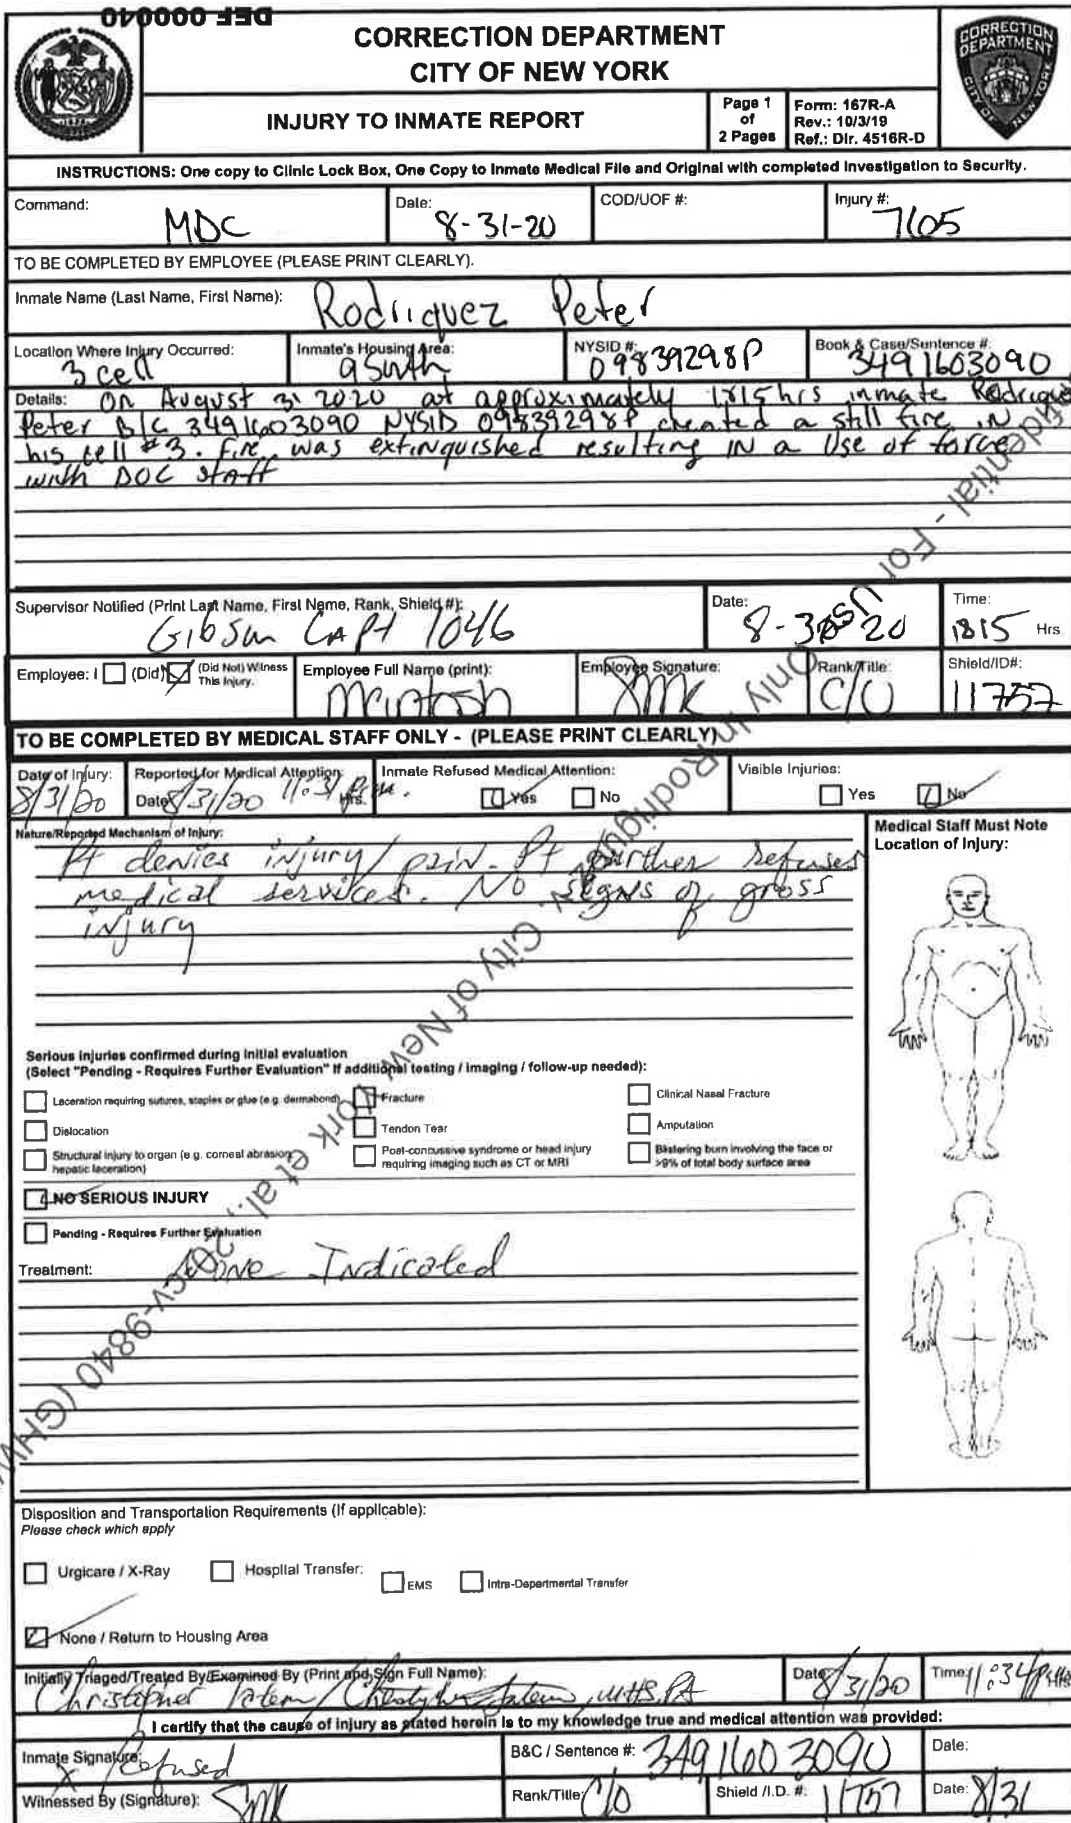 DEF 000040
CORRECTION DEPARTMENT
CITY OF NEW YORK
CORRECTION DEPARTMENT
CITY OF NEW YORK
INJURY TO INMATE REPORT
Page 1
of
2 Pages
Form: 167R-A
Rev.: 10/3/19
Ref.: Dir. 4516R-D
INSTRUCTIONS: One copy to Clinic Lock Box, One Copy to Inmate Medical File and Original with completed Investigation to Security.
Command: MDC
Date: 8-31-20
COD/UOF #:
Injury #: 7105
TO BE COMPLETED BY EMPLOYEE (PLEASE PRINT CLEARLY).
Inmate Name (Last Name, First Name): Rodriquez Peter
Location Where Injury Occurred: 3 cell
Inmate's Housing Area: 9 South
NYSID #: 09839298P
Book & Case/Sentence #: 3491603090
Details: On August 31 2020 at approximately 1815hrs inmate Rodrique
Peter B/C 3491603090 NYSID 09839298P created a still fire in
his cell #3. Fire was extinquished resulting in a Use of force
with DOC staff
Supervisor Notified (Print Last Name, First Name, Rank, Shield #): Gibson CAPt 1046
Date: 8-31-20
Time: 1815 Hrs
Employee: I (Did) (Did Not) Witness
This Injury.
Employee Full Name (print): McIntosh
Employee Signature:
Rank/Title: C/O
Shield/ID#: 11757
TO BE COMPLETED BY MEDICAL STAFF ONLY - (PLEASE PRINT CLEARLY)
Date of Injury: 8/31/20
Reported for Medical Attention:
Date 8/31/20 11:31 p.m. Hrs.
Inmate Refused Medical Attention:
Yes No
Visible Injuries:
Yes No
Nature/Reported Mechanism of Injury:
Pt denies injury/pain. Pt further refuses
medical services. No signs of gross
injury
Medical Staff Must Note
Location of Injury:
Serious injuries confirmed during initial evaluation
(Select "Pending - Requires Further Evaluation" if additional testing / imaging / follow-up needed):
Laceration requiring sutures, staples or glue (e.g. dermabond)
Fracture
Clinical Nasal Fracture
Dislocation
Tendon Tear
Amputation
Structural injury to organ (e.g. corneal abrasion,
hepatic laceration)
Post-concussive syndrome or head injury
requiring imaging such as CT or MRI
Blistering burn involving the face or
>9% of total body surface area
NO SERIOUS INJURY
Pending - Requires Further Evaluation
Treatment: None Indicated
Disposition and Transportation Requirements (If applicable):
Please check which apply
Urgicare / X-Ray
Hospital Transfer:
EMS
Intra-Departmental Transfer
None / Return to Housing Area
Initially Triaged/Treated By/Examined By (Print and Sign Full Name):
Christopher
Date 8/31/20
Time: 11:34 p Hrs
I certify that the cause of injury as stated herein is to my knowledge true and medical attention was provided:
Inmate Signature: X Refused
B&C / Sentence #: 3491603090
Date:
Witnessed By (Signature):
Rank/Title: C/O
Shield /I.D. #: 11757
Date: 8/31
Confidential - For Use Only in Rodriguez v. City of New York et al., 20-cv-9840 (GHW)